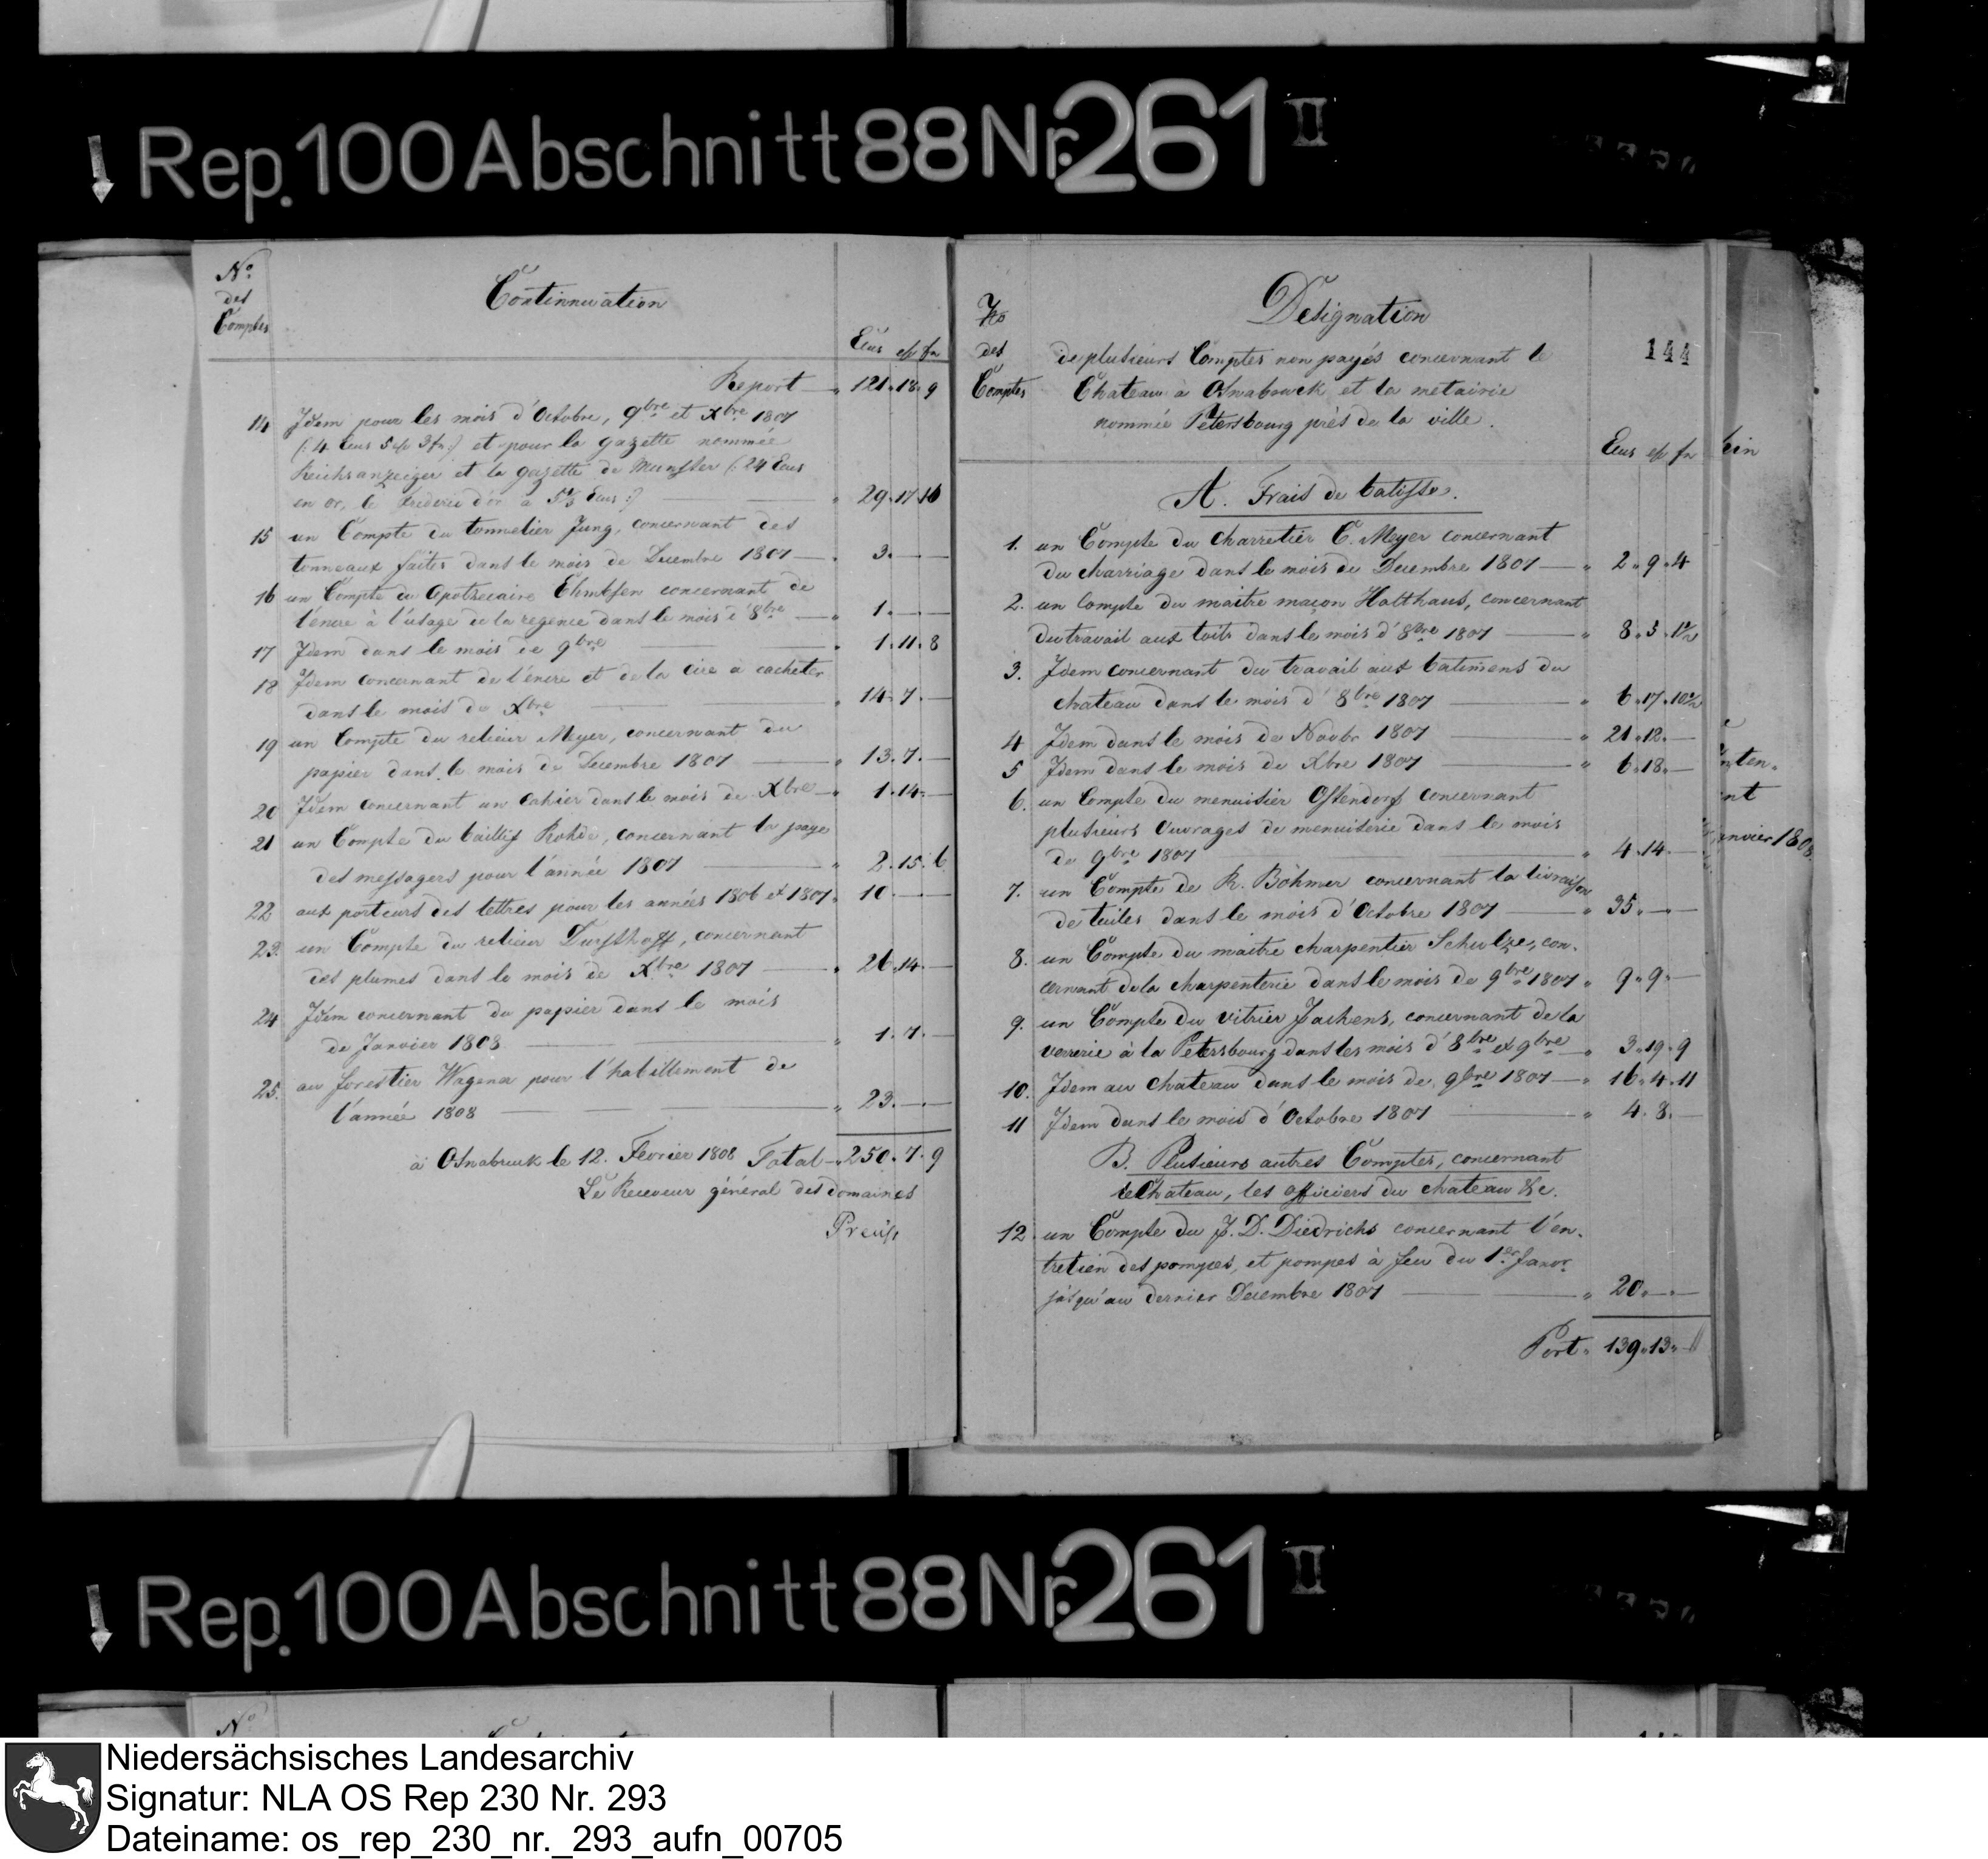 Rep. 100 Abschnitt 88 Nr. 261 II
No.
des
Comptes
Continnuation
Ecus
Report 121. 18. 9
14 Idem pour les mois d'Octobre, 9bre et Xbre 1807
(: 4 Ecus 5 3 :) et pour la gazette nommée
Reichsanzeiger et la gazette de Munster (: 24 Ecus
en or, le Frederic d'or à 5⅓ Ecus :) 29. 17
15 un Compte du tonnelier Jung, concernant des
tonneaux faites dans le mois de Decembre 1807 3. — —
16 un Compte du Apothecaire Ehmbsen concernant de
l'encre à l'usage de la regence dans le mois d'8bre 1. — —
17 Idem dans le mois de 9bre 1. 11. 8
18 Idem concernant de l'encre et de la cire a cacheter
dans le mois de Xbre 14. 7. —
19 un Compte du relieur Meyer, concernant du
papier dans le mois de Decembre 1807 13. 7. —
20 Idem concernant un cahier dans le mois de Xbre 1. 14. —
21 un Compte du baillif Rohde, concernant la paye
des messagers pour l'année 1807 2. 15. 6
22 aux porteurs des lettres pour les années 1806 et 1807 10 — —
23. un Compte du relieur Dursthoff, concernant
des plumes dans le mois de Xbre 1807 26. 14. —
24 Idem concernant du papier dans le mois
de Janvier 1808 1. 7. —
25. au forestier Wagener pour l'habillement de
l'année 1808 23. — —
à Osnabruck le 12. Fevrier 1808 Total 250. 7. 9
Le Receveur général des domaines
Preuss
No
des
Comptes
Designation
de plusieurs Comptes non payés concernant le
Chateau à Osnabruck et la metairie
nommée Petersbourg près de la ville.
144
Ecus
A. Frais de batisse.
1. un Compte du charretier C. Meyer concernant
du charriage dans le mois de Decembre 1807 2. 9. 4
2. un Compte du maitre maçon Holthaus, concernant
du travail aux toits dans le mois d'8bre 1807 8. 5. 1½
3. Idem concernant du travail aux batimens du
chateau dans le mois d'8bre 1807 6. 17. 10½
4 Idem dans le mois de Novbr 1807 21. 12. —
5 Idem dans le mois de Xbre 1807 6. 18. —
6. un Compte du menuisier Ostendorf concernant
plusieurs ouvrages de menuiserie dans le mois
de 9bre 1807 4. 14. —
7. un Compte de R. Böhmer concernant la livraison
de tuiles dans le mois d'Octobre 1807 35. — —
8. un Compte du maitre charpentier Schulze, con-
cernant de la charpenterie dans le mois de 9bre 1807 9. 9. —
9. un Compte du vitrier Jachens, concernant de la
verrerie à la Petersbourg dans les mois d'8bre et 9bre 3. 19. 9
10. Idem au chateau dans le mois de 9bre 1807 16. 4. 11
11 Idem dans le mois d'Octobre 1807 4. 8. —
B. Plusieurs autres Comptes, concernant
le Chateau, les officiers du chateau &c.
12. un Compte du J. D. Diedrichs concernant l'en-
tretien des pompes, et pompes à feu du 1er Janvr
jusqu'au dernier Decembre 1807 20. — —
Port 139. 13. —
ein
nten.
nt
anvier 1808.
Rep. 100 Abschnitt 88 Nr. 261 II
No.
Niedersächsisches Landesarchiv
Signatur: NLA OS Rep 230 Nr. 293
Dateiname: os_rep_230_nr._293_aufn_00705